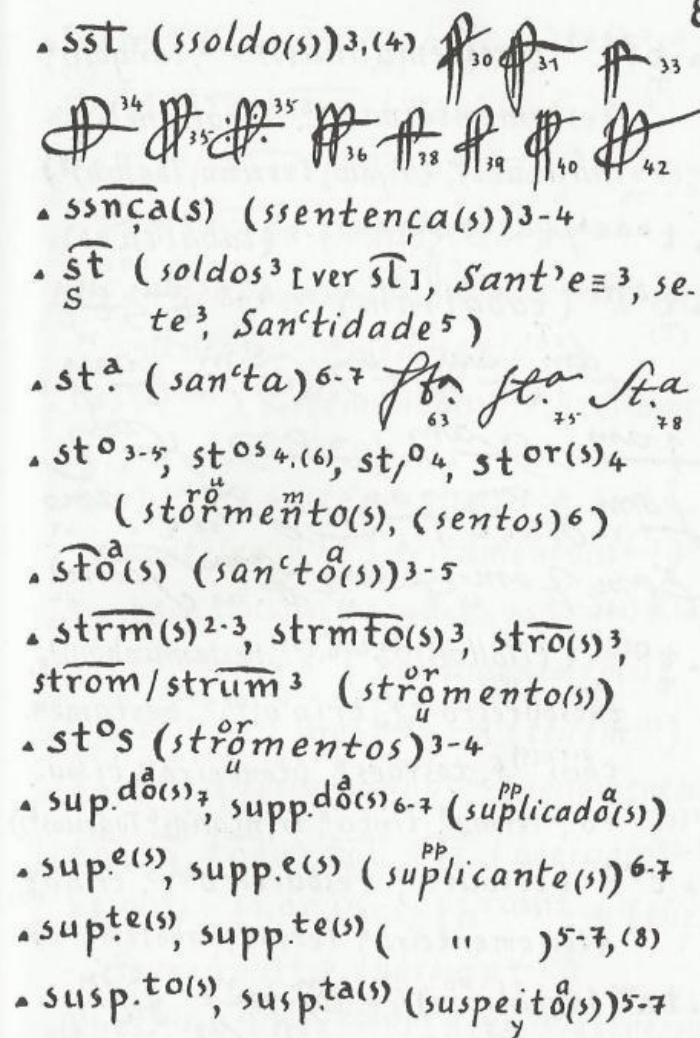 8
. s͞s͞t (ssoldo(s))3,(4) 30 31 33
34 35 35 36 38 39 40 42
. ss͞n͞ça(s) (ssentença(s))3-4
. s͞t (soldos³ [ver s͞l], Sant'e≡³, se-
S te³, Sanᶜtidade⁵)
. st.ª (sanᶜta)⁶⁻⁷ Sta. 63 Sta. 75 St.a 78
. stº3-5, stºˢ4,(6), st/º4, stor(s)4
(stormento(s), (sentos)⁶)
. s͞t͞oª(s) (sanᶜtoª(s))3-5
. st͞r͞m(s)²⁻³, st͞r͞m͞t͞o(s)³, st͞r͞o(s)³,
st͞r͞o͞m/st͞r͞u͞m³ (stromento(s))
. stºs (stromentos)3-4
. sup.doª(s)7, supp.doª(s)6-7 (suplicadoª(s))
. sup.e(s), supp.e(s) (suplicante(s))6-7
. sup.te(s), supp.te(s) ( " )5-7,(8)
. susp.to(s), susp.ta(s) (suspeitoª(s))5-7